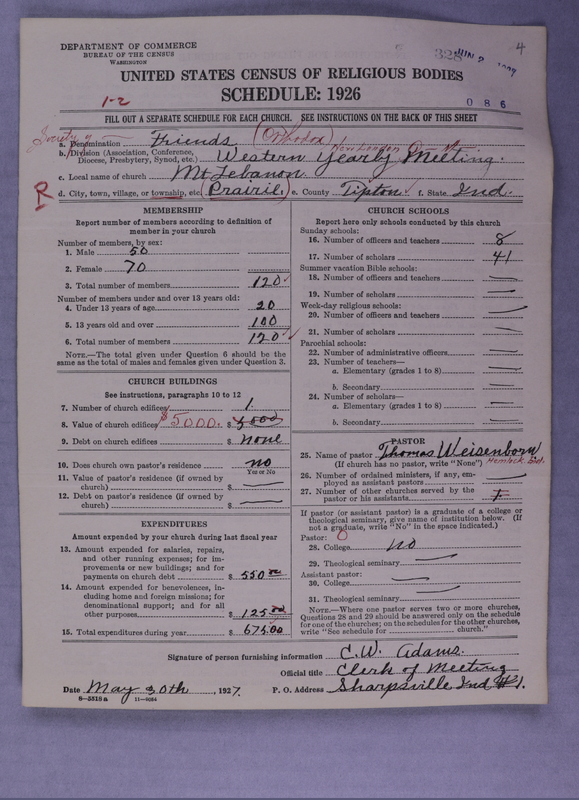 4
DEPARTMENT OF COMMERCE
BUREAU OF THE CENSUS
WASHINGTON
328 JUN 2
UNITED STATES CENSUS OF RELIGIOUS BODIES
SCHEDULE: 1926
1-2
0 8 6
FILL OUT A SEPARATE SCHEDULE FOR EACH CHURCH. SEE INSTRUCTIONS ON THE BACK OF THIS SHEET
Society of
a. Denomination Friends (Orthodox)
New London Q. M.
b. Division (Association, Conference, Diocese, Presbytery, Synod, etc.) Western Yearly Meeting.
c. Local name of church Mt Lebanon
R
d. City, town, village, or township, etc. (Prairie) e. County Tipton f. State Ind.
MEMBERSHIP
Report number of members according to definition of
member in your church
Number of members, by sex:
1. Male 50
2. Female 70
3. Total number of members 120
Number of members under and over 13 years old:
4. Under 13 years of age 20
5. 13 years old and over 100
6. Total number of members 120
NOTE.—The total given under Question 6 should be the
same as the total of males and females given under Question 3.
CHURCH BUILDINGS
See instructions, paragraphs 10 to 12
7. Number of church edifices 1
8. Value of church edifices $5000. $ 5000
9. Debt on church edifices $ none
10. Does church own pastor's residence no
Yes or No
11. Value of pastor's residence (if owned by
church) $ —
12. Debt on pastor's residence (if owned by
church) $ —
EXPENDITURES
Amount expended by your church during last fiscal year
13. Amount expended for salaries, repairs,
and other running expenses; for im-
provements or new buildings; and for
payments on church debt $ 550 00
14. Amount expended for benevolences, in-
cluding home and foreign missions; for
denominational support; and for all
other purposes $ 125.00
15. Total expenditures during year $ 675.00
CHURCH SCHOOLS
Report here only schools conducted by this church
Sunday schools:
16. Number of officers and teachers 8
17. Number of scholars 41
Summer vacation Bible schools:
18. Number of officers and teachers —
19. Number of scholars —
Week-day religious schools:
20. Number of officers and teachers —
21. Number of scholars —
Parochial schools:
22. Number of administrative officers —
23. Number of teachers—
a. Elementary (grades 1 to 8) —
b. Secondary —
24. Number of scholars—
a. Elementary (grades 1 to 8) —
b. Secondary —
PASTOR
25. Name of pastor Thomas Weisenborn
(If church has no pastor, write "None") Hemlock Ind.
26. Number of ordained ministers, if any, em-
ployed as assistant pastors —
27. Number of other churches served by the
pastor or his assistants
If pastor (or assistant pastor) is a graduate of a college or
theological seminary, give name of institution below. (If
not a graduate, write "No" in the space indicated.)
Pastor: 0
28. College no
29. Theological seminary —
Assistant pastor:
30. College —
31. Theological seminary —
NOTE.—Where one pastor serves two or more churches,
Questions 28 and 29 should be answered only on the schedule
for one of the churches; on the schedules for the other churches,
write "See schedule for church."
Signature of person furnishing information C.W. Adams.
Official title Clerk of Meeting
Date May 30th, 1927.
P. O. Address Sharpsville Ind #1.
8-5518a 11-9084